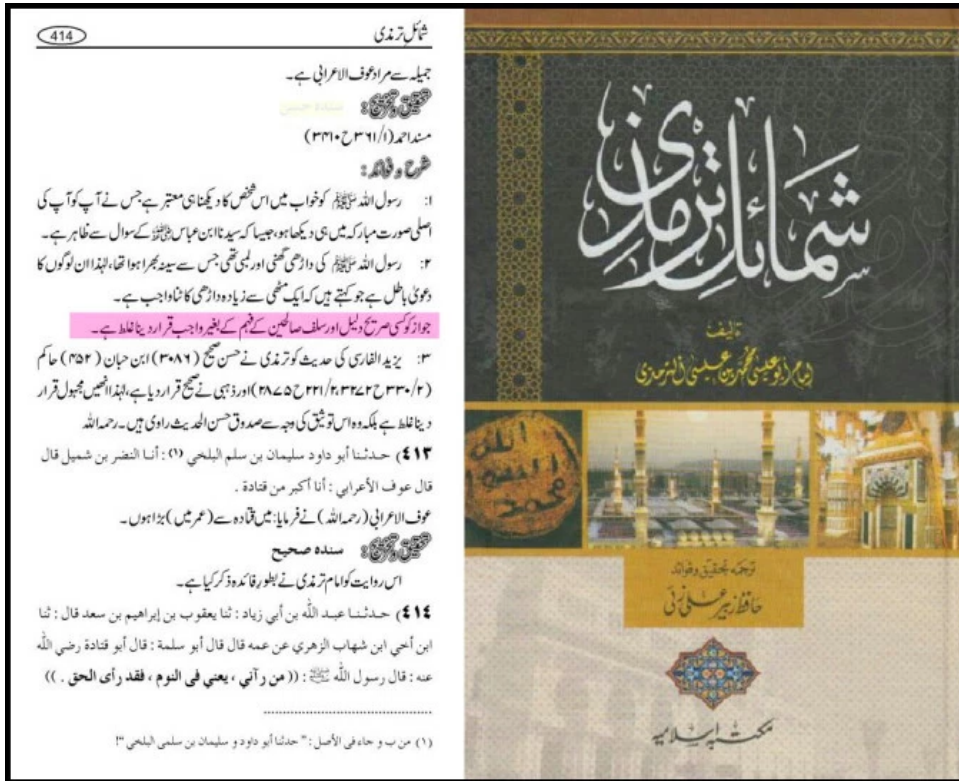 414
شمائلِ ترمذی
جمیلہ سے مراد عوف الاعرابی ہے۔
تحقیق و تخریج: سندہ حسن
مسند احمد (۳۶۱/۱ ح ۳۴۱۰)
شرح و فوائد:
۱: رسول اللہ ﷺ کو خواب میں اس شخص کا دیکھنا ہی معتبر ہے جس نے آپ کو آپ کی
اصلی صورت مبارکہ میں ہی دیکھا ہو، جیسا کہ سیدنا ابن عباس رضی اللہ عنہ کے سوال سے ظاہر ہے۔
۲: رسول اللہ ﷺ کی داڑھی گھنی اور لمبی تھی جس سے سینہ بھرا ہوا تھا، لہٰذا ان لوگوں کا
دعویٰ باطل ہے جو کہتے ہیں کہ ایک مٹھی سے زیادہ داڑھی کا ٹنا واجب ہے۔
جواز کو کسی صریح دلیل اور سلف صالحین کے فہم کے بغیر واجب قرار دینا غلط ہے۔
۳: یزید الفارسی کی حدیث کو ترمذی نے حسن صحیح (۳۰۸۶) ابن حبان (۴۵۲) حاکم
(۳۳۰/۲ ح ۳۲۷۲، ۲۲۱/۲ ح ۲۸۷۵) اور ذہبی نے صحیح قرار دیا ہے، لہٰذا انھیں مجہول قرار
دینا غلط ہے بلکہ وہ اس توثیق کی وجہ سے صدوق حسن الحدیث راوی ہیں۔ رحمہ اللہ
٤١٣) حدثنا أبو داود سليمان بن سلم البلخي (١) : أنا النضر بن شميل قال
قال عوف الأعرابي : أنا أكبر من قتادة .
عوف الاعرابی (رحمہ اللہ) نے فرمایا: میں قتادہ سے (عمر میں) بڑا ہوں۔
تحقیق و تخریج: سندہ صحیح
اس روایت کو امام ترمذی نے بطورِ فائدہ ذکر کیا ہے۔
٤١٤) حدثنا عبد الله بن أبي زياد : ثنا يعقوب بن إبراهيم بن سعد قال : ثنا
ابن أخي ابن شهاب الزهري عن عمه قال قال أبو سلمة : قال أبو قتادة رضي الله
عنه : قال رسول الله ﷺ : (( من رآني ، يعني في النوم ، فقد رأى الحق . ))
(١) من ب و جاء في الأصل : " حدثنا أبو داود و سليمان بن سلمى البلخي "!
شمائل ترمذی
تالیف
امام ابو عیسیٰ محمد بن عیسیٰ الترمذی
الله
رسول
محمد
ترجمہ تحقیق و فوائد
حافظ زبیر علی زئی
مکتبہ اسلامیہ